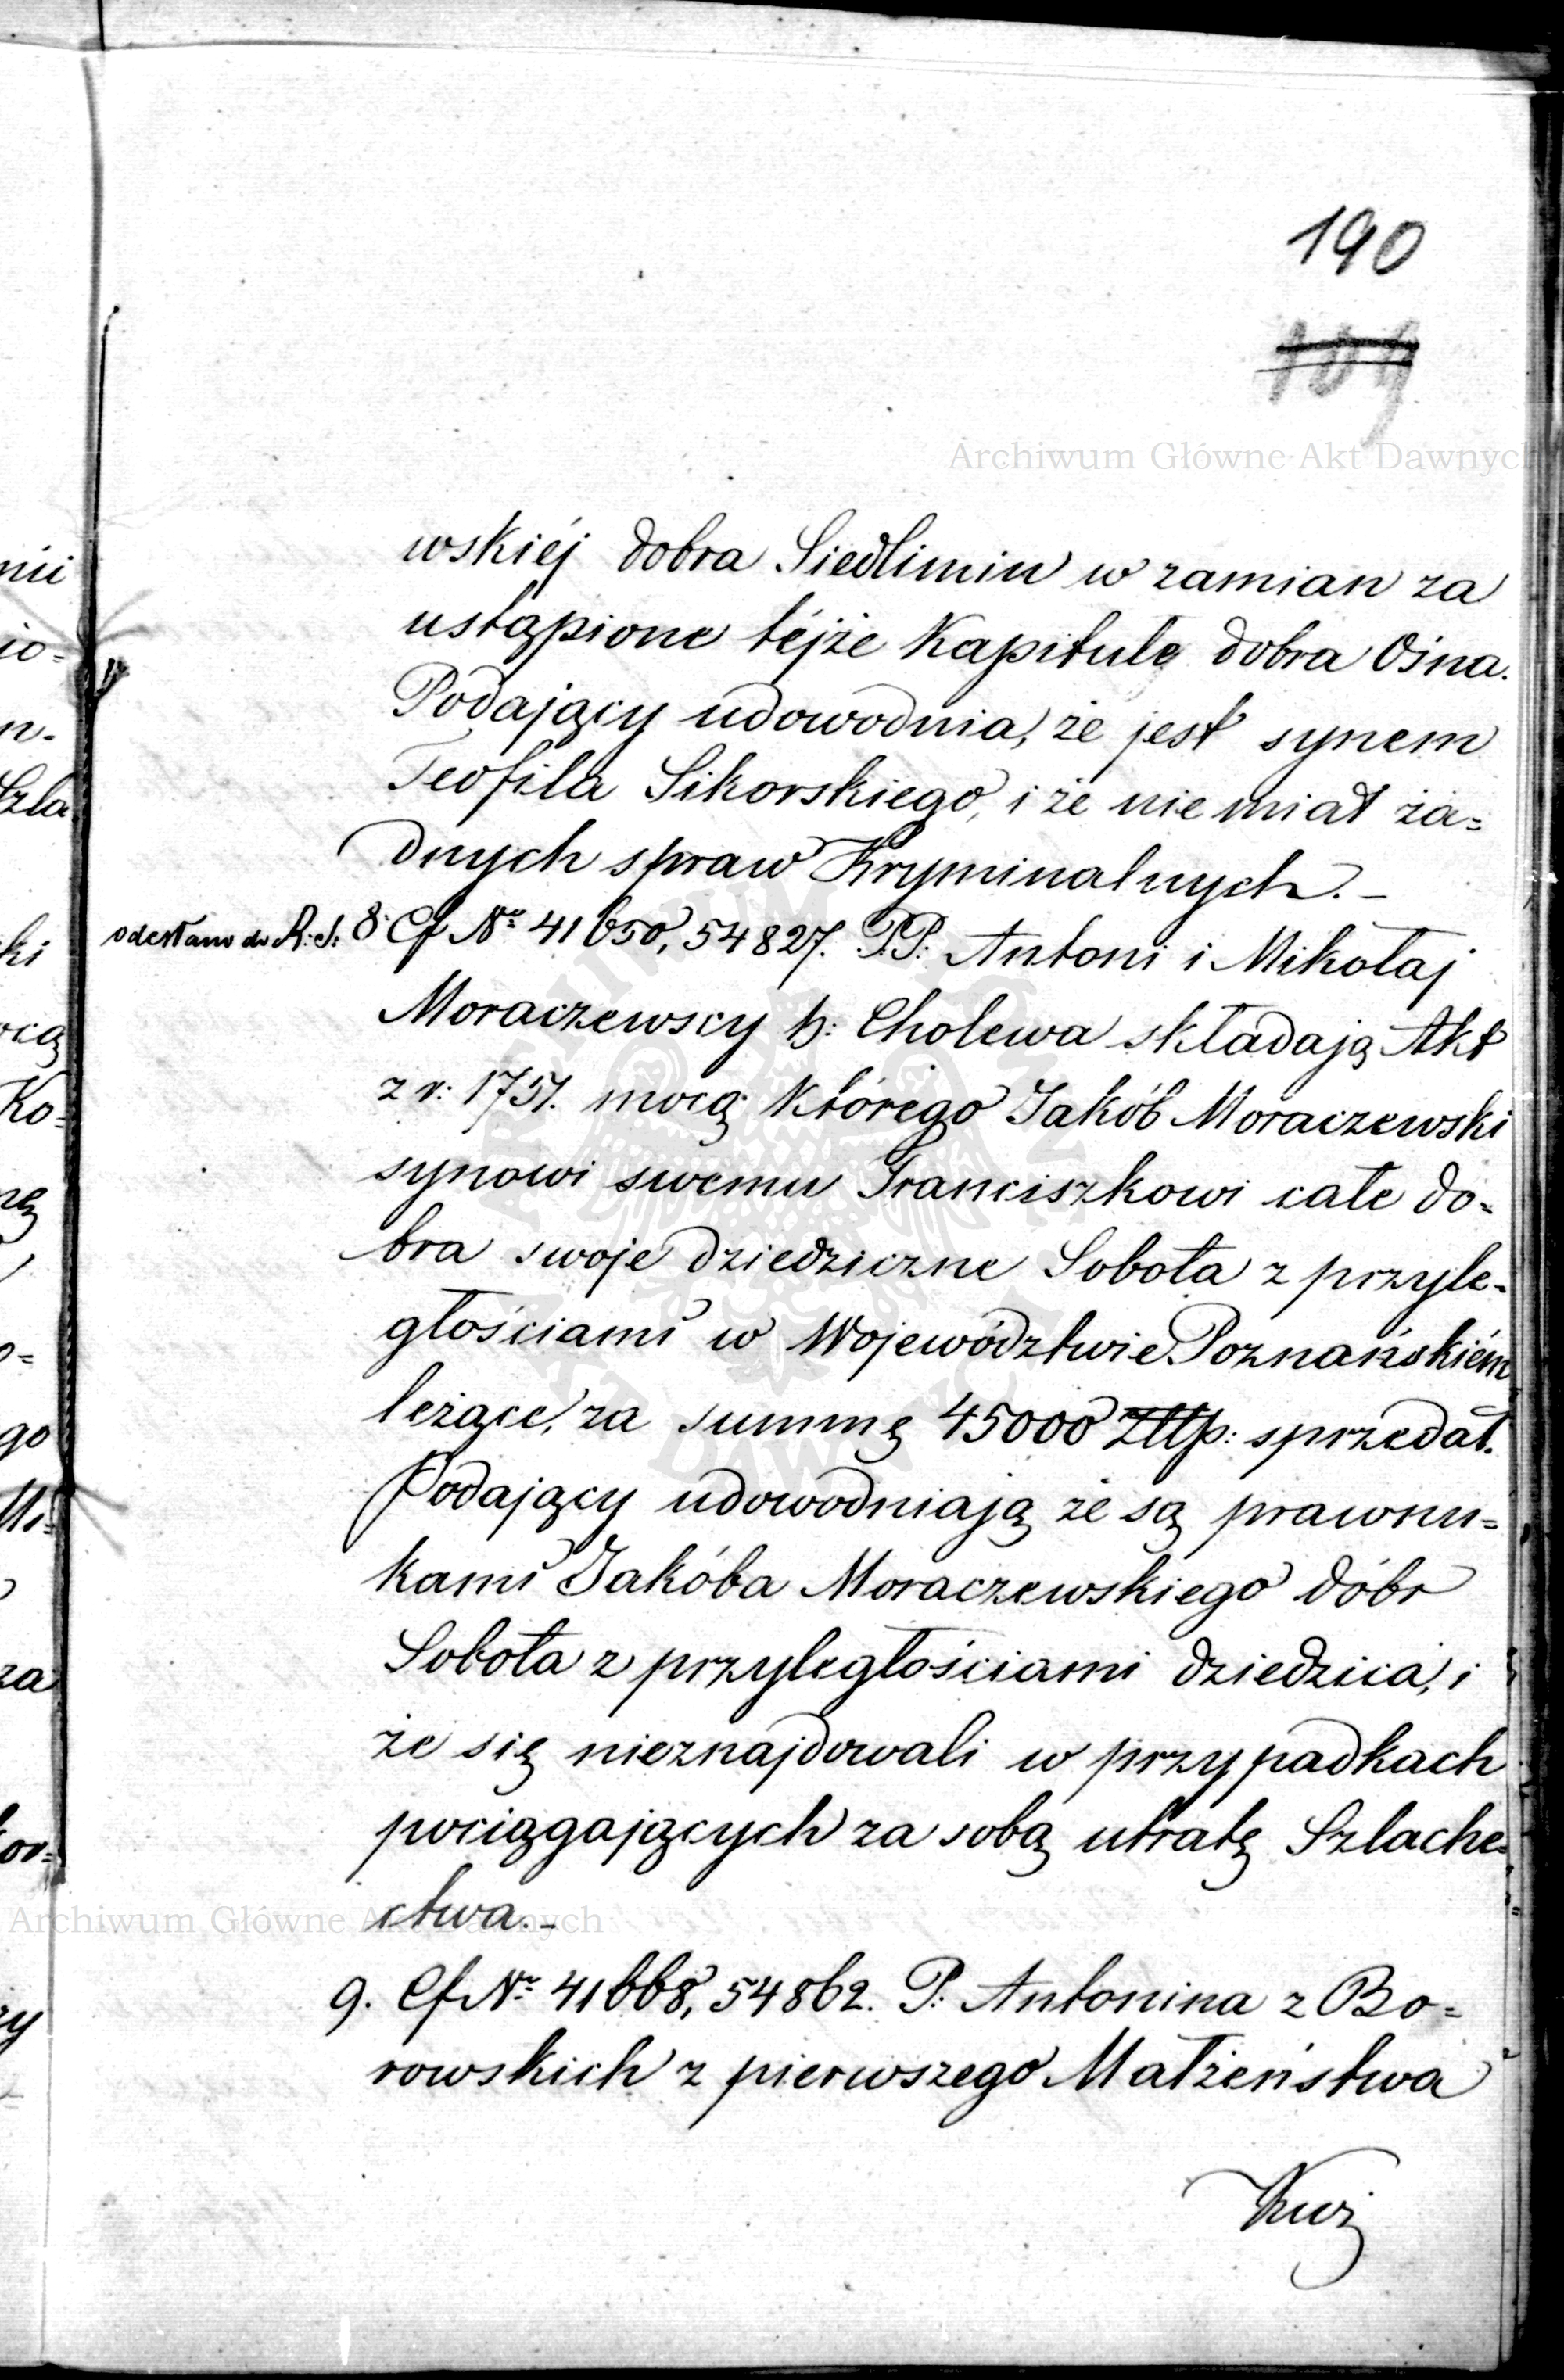 190
109
Archiwum Główne Akt Dawnych
wskiéj dobra Siedlimin w zamian za
ustąpione téjże Kapitule dobra Ośna.
Podający udowodnia, że jest synem
Teofila Sikorskiego, i że nie miał ża=
dnych spraw Kryminalnych.–
odesłano do R: S: 8. Cf No 41650, 54827. P.P: Antoni i Mikołaj
Moraczewscy h: Cholewa składają Akt
z r: 1751. mocą którego Jakób Moraczewski
synowi swemu Franciszkowi całe do=
bra swoje dziedziczne Sobota z przyle=
głościami w Województwie Poznańskiém
leżące, za summę 45000 Złłp: sprzedał.
Podający udowodniają że są prawnu=
kami Jakóba Moraczewskiego dóbr
Sobota z przyległościami dziedzica, i
że się nieznajdowali w przypadkach
pociągających za sobą utratę Szlache=
ctwa.–
Archiwum Główne Akt Dawnych
9. Cf No 41668, 54862. P: Antonina z Bo=
rowskich z pierwszego Małżeństwa